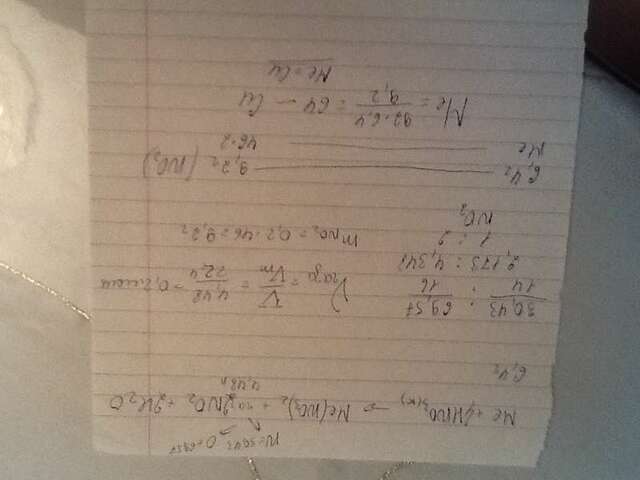 N=30,43 O=69,57
Me + 4HNO3(к) → Me(NO3)2 + 2NO2 + 2H2O
6,4г 4,48л
30,43/14 : 69,57/16
2,173 : 4,348
1 : 2
NO2
νгаза = V/Vm = 4,48/22,4 = 0,2 моль
mNO2 = 0,2·46 = 9,2г
6,4г — 9,2г (NO2)
Me — 46·2
Me = 92·6,4/9,2 = 64 — Cu
Me = Cu